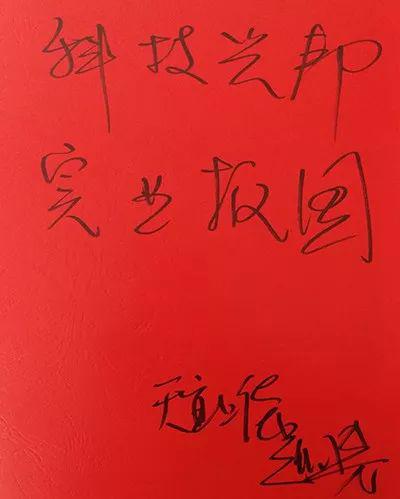 科技兴邦
实业报国